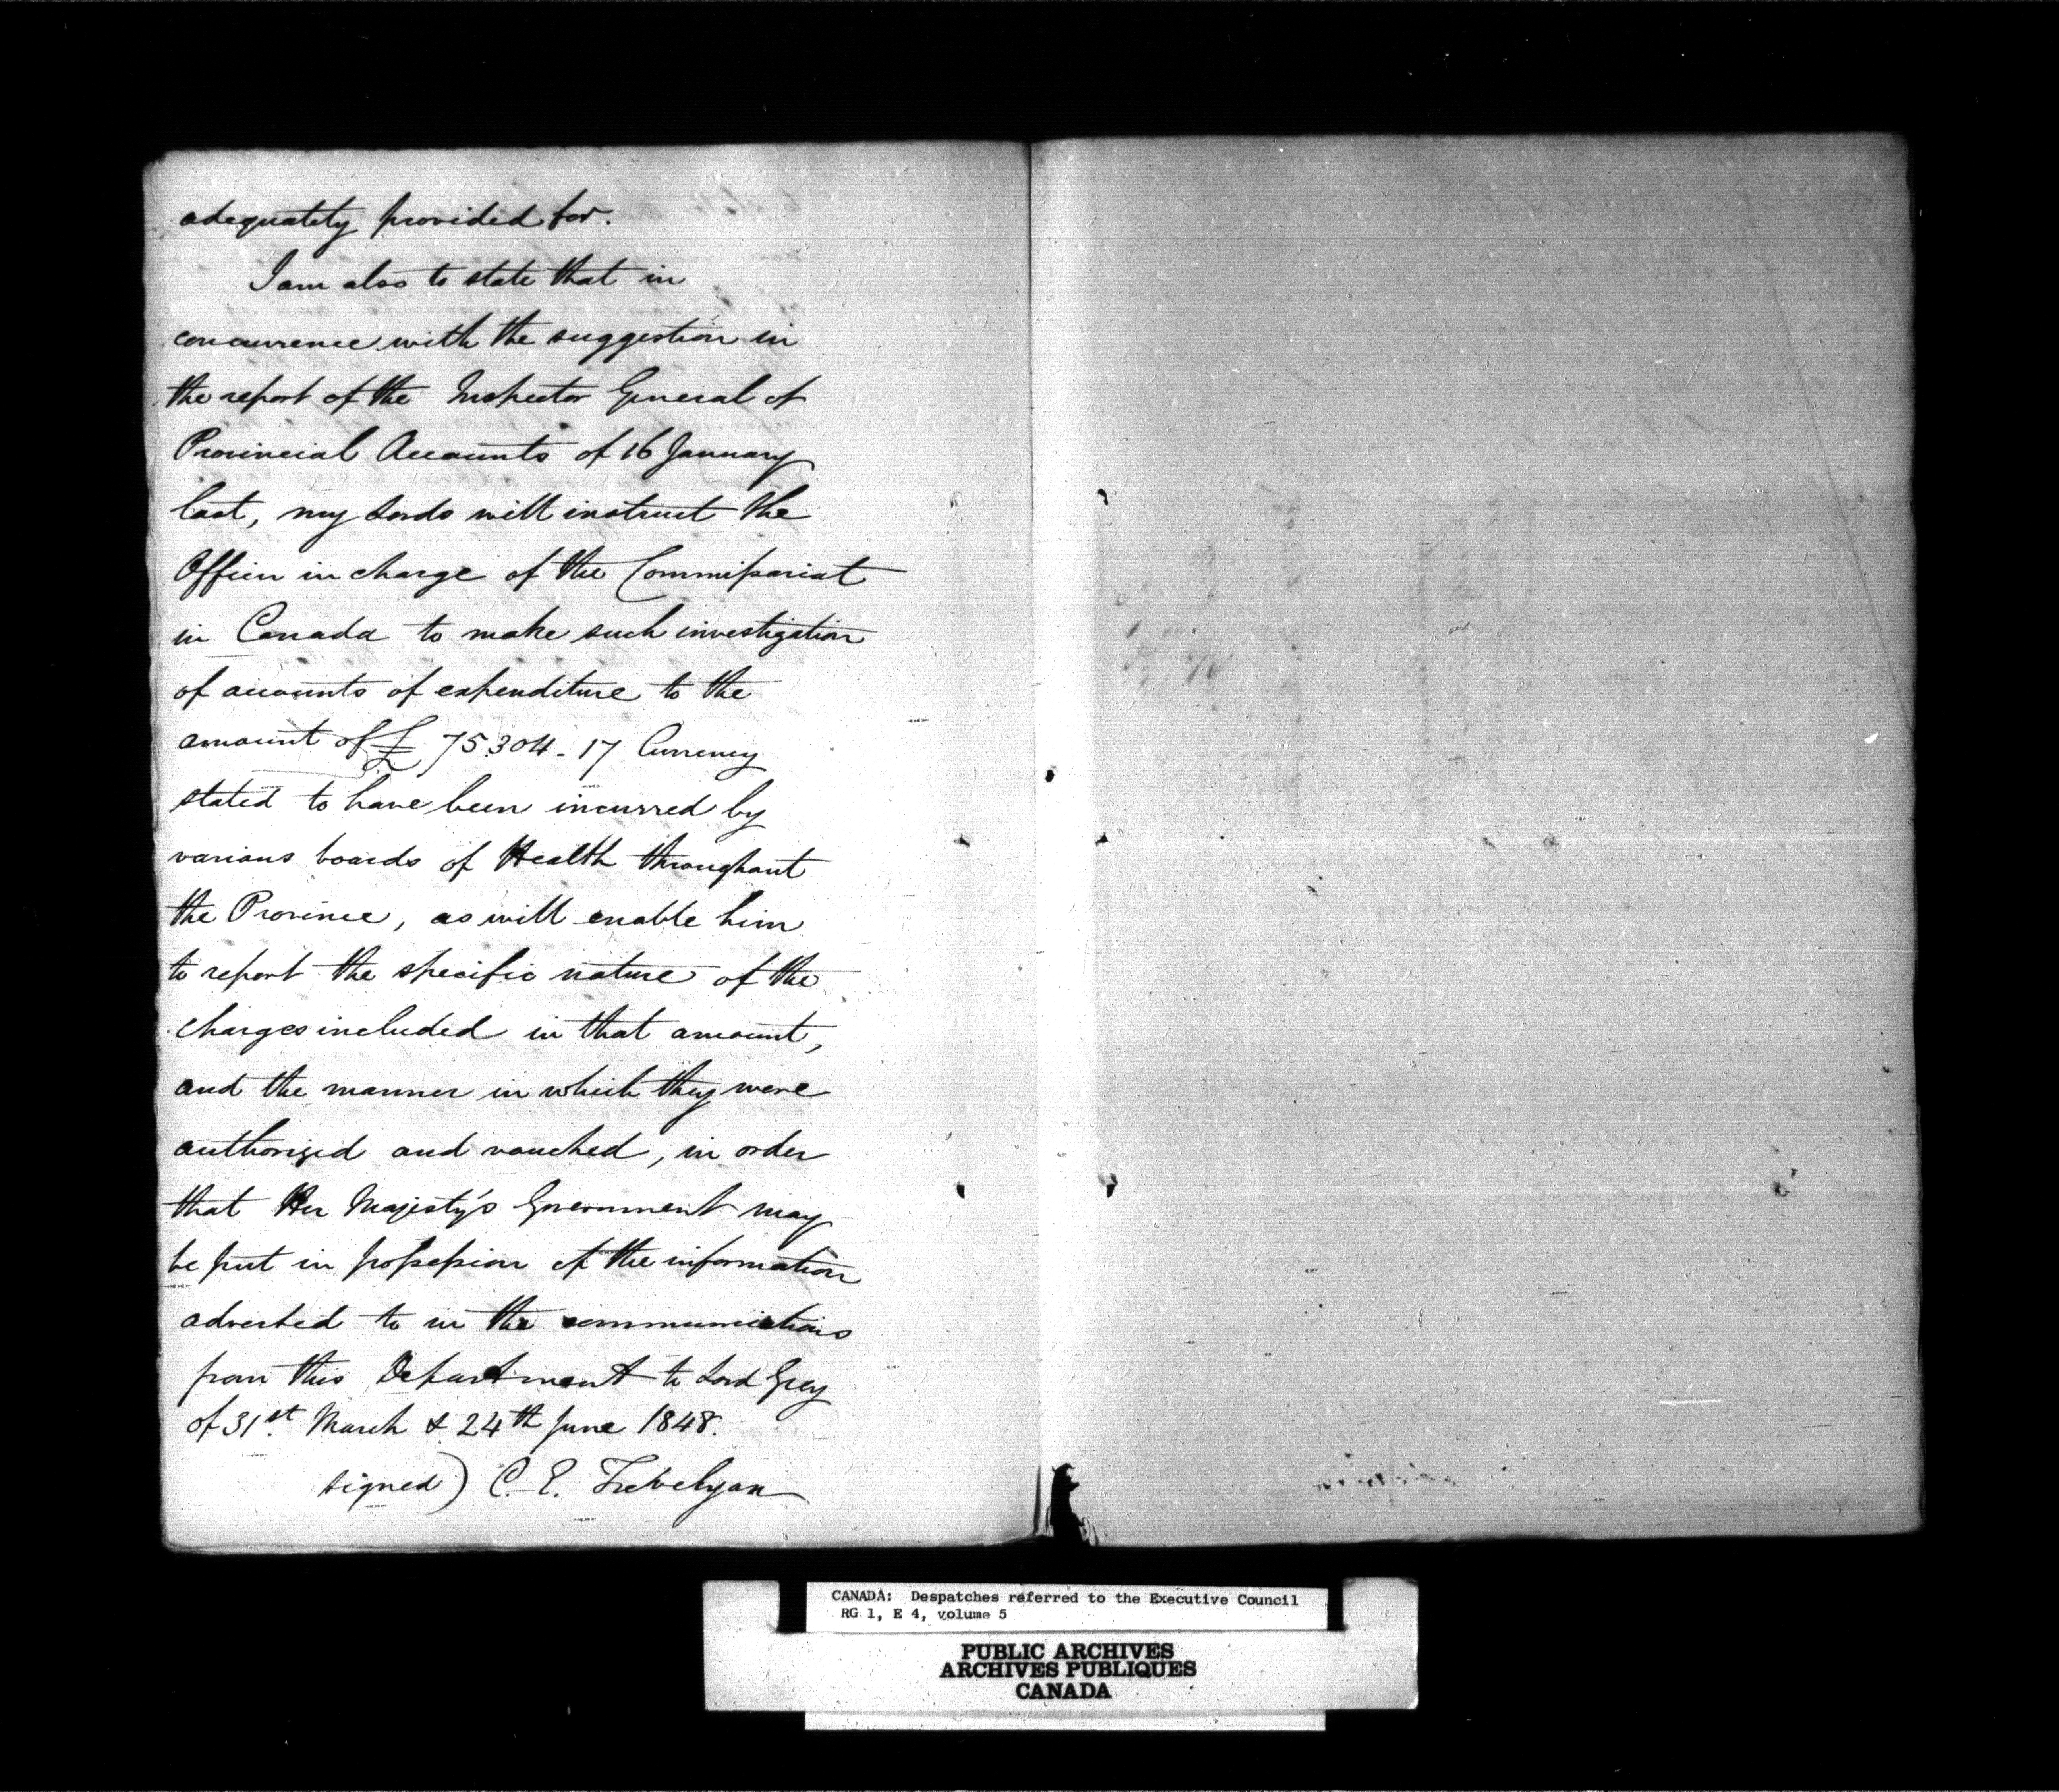 adequately provided for.
I am also to state that in
concurrence with the suggestion in
the report of the Inspector General of
Provincial Accounts of 16 January
last, my Lords will instruct the
Officer in charge of the Commissariat
in Canada to make such investigation
of accounts of expenditure to the
amount of £ 75.304 - 17 Currency
stated to have been incurred by
various boards of Health throughout
the Province, as will enable him
to report the specific nature of the
charges included in that amount,
and the manner in which they were
authorized and vouched, in order
that Her Majesty's Government may
be put in possession of the information
adverted to in the communications
from this Department to Lord Grey
of 31st. March & 24th June 1848.
signed) C. E. Trevelyan
CANADA: Despatches referred to the Executive Council
RG 1, E 4, volume 5
PUBLIC ARCHIVES
ARCHIVES PUBLIQUES
CANADA